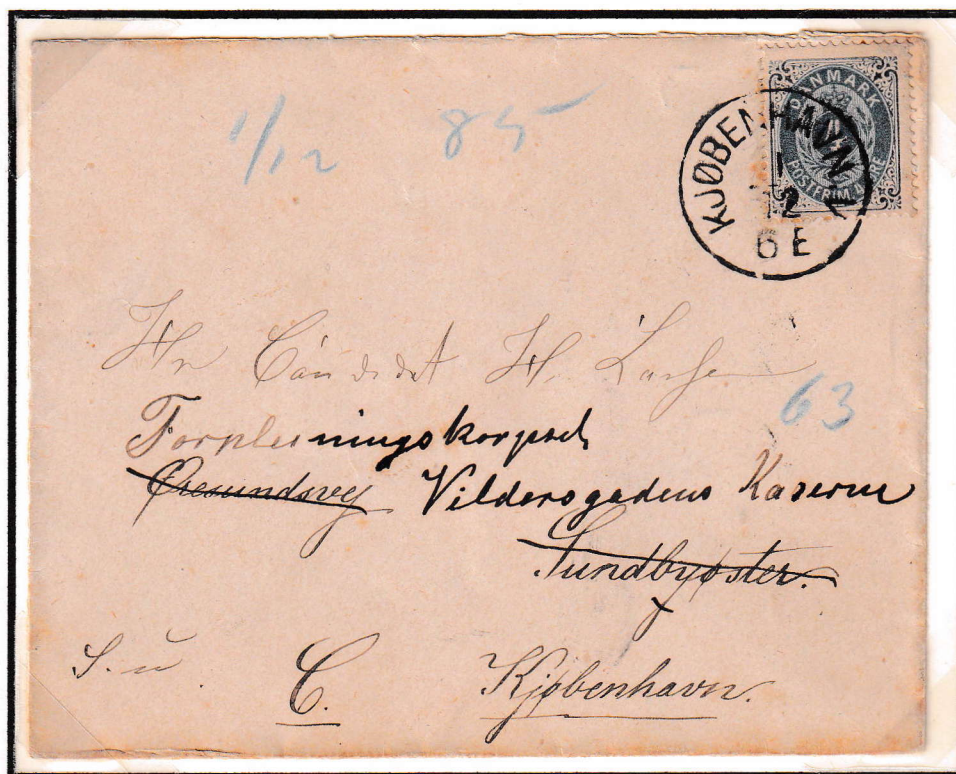 1/12 85
DANMARK
POSTFRIM. 4 ØRE
KJØBENHAVN
1
12
6 E
Hr Candidat H. Larsen
63
Forpleiningskorpset
Øresundsvej Vildersgadens Kaserne
Sundbyøster.
S. u C. Kjøbenhavn.